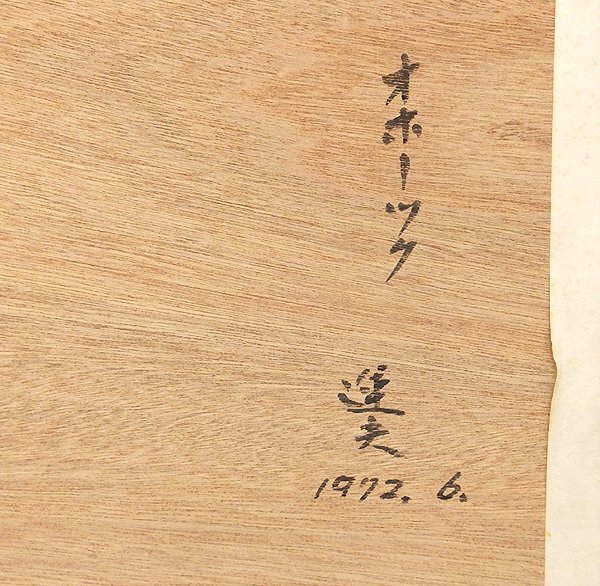 オホーツク
進夫
1972. 6.